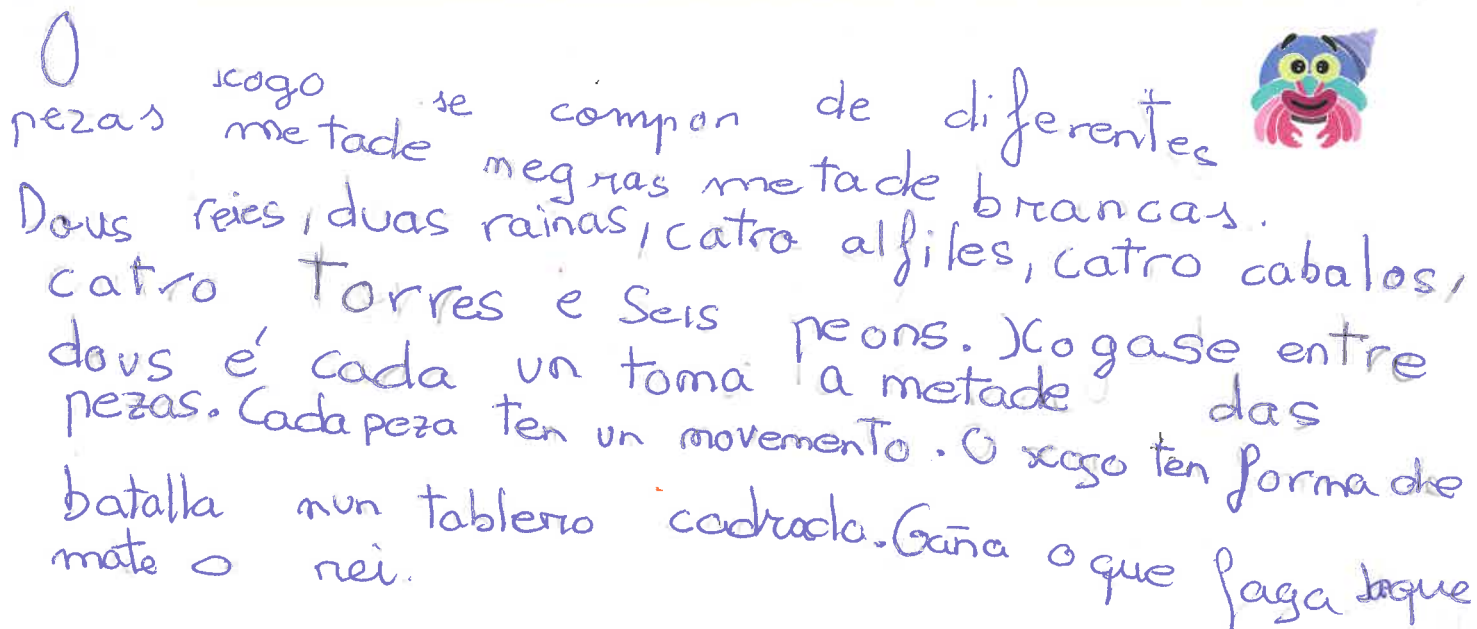 O xogo se compon de diferentes
pezas metade negras metade brancas.
Dous reies, duas rainas, catro alfiles, catro cabalos,
catro Torres e Seis peons. Xogase entre
dous é cada un toma a metade das
pezas. Cada peza ten un movemento. O xogo ten forma de
batalla nun tablero cadrado. Gaña o que faga xaque
mate o rei.